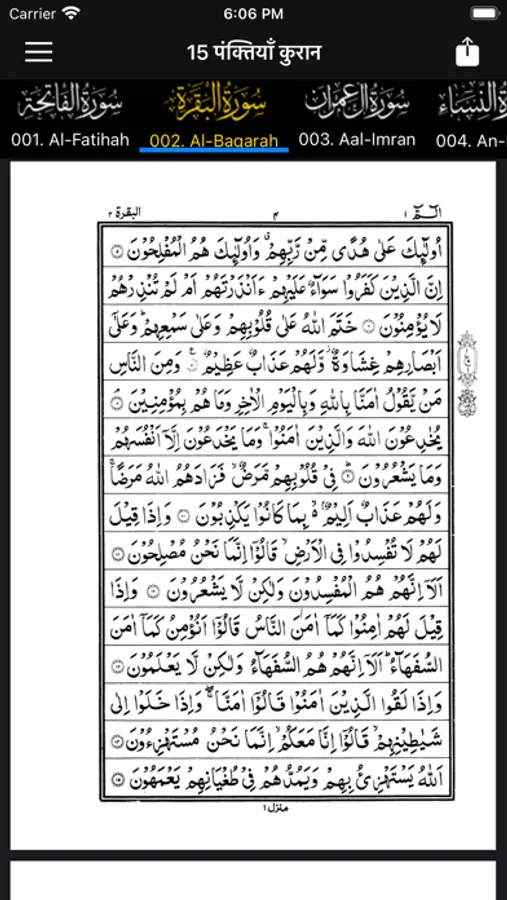 Carrier 6:06 PM
15 पंक्तियाँ कुरान
سورة الفاتحة سورة البقرة سورة آل عمران سورة النساء
001. Al-Fatihah 002. Al-Baqarah 003. Aal-Imran 004. An-
الٓـمّٓ ١ ٤ البقرة ٢
اُولٰٓئِكَ عَلٰى هُدًى مِّنْ رَّبِّهِمْ ۗ وَاُولٰٓئِكَ هُمُ الْمُفْلِحُوْنَ ٥
اِنَّ الَّذِيْنَ كَفَرُوْا سَوَآءٌ عَلَيْهِمْ ءَاَنْذَرْتَهُمْ اَمْ لَمْ تُنْذِرْهُمْ
لَا يُؤْمِنُوْنَ ٦ خَتَمَ اللّٰهُ عَلٰى قُلُوْبِهِمْ وَعَلٰى سَمْعِهِمْ ؕ وَعَلٰٓى
اَبْصَارِهِمْ غِشَاوَةٌ ۡ وَّلَهُمْ عَذَابٌ عَظِيْمٌ ٧ وَمِنَ النَّاسِ
مَنْ يَّقُوْلُ اٰمَنَّا بِاللّٰهِ وَبِالْيَوْمِ الْاٰخِرِ وَمَا هُمْ بِمُؤْمِنِيْنَ ٨
يُخٰدِعُوْنَ اللّٰهَ وَالَّذِيْنَ اٰمَنُوْا ۚ وَمَا يَخْدَعُوْنَ اِلَّآ اَنْفُسَهُمْ
وَمَا يَشْعُرُوْنَ ٩ فِىْ قُلُوْبِهِمْ مَّرَضٌ ۙ فَزَادَهُمُ اللّٰهُ مَرَضًا ۚ
وَلَهُمْ عَذَابٌ اَلِيْمٌ ۢ ۙ بِمَا كَانُوْا يَكْذِبُوْنَ ١٠ وَاِذَا قِيْلَ
لَهُمْ لَا تُفْسِدُوْا فِى الْاَرْضِ ۙ قَالُوْٓا اِنَّمَا نَحْنُ مُصْلِحُوْنَ ١١
اَلَآ اِنَّهُمْ هُمُ الْمُفْسِدُوْنَ وَلٰكِنْ لَّا يَشْعُرُوْنَ ١٢ وَاِذَا
قِيْلَ لَهُمْ اٰمِنُوْا كَمَآ اٰمَنَ النَّاسُ قَالُوْٓا اَنُؤْمِنُ كَمَآ اٰمَنَ
السُّفَهَآءُ ؕ اَلَآ اِنَّهُمْ هُمُ السُّفَهَآءُ وَلٰكِنْ لَّا يَعْلَمُوْنَ ١٣
وَاِذَا لَقُوا الَّذِيْنَ اٰمَنُوْا قَالُوْٓا اٰمَنَّا ۖۚ وَاِذَا خَلَوْا اِلٰى
شَيٰطِيْنِهِمْ ۙ قَالُوْٓا اِنَّا مَعَكُمْ ۙ اِنَّمَا نَحْنُ مُسْتَهْزِءُوْنَ ١٤
اَللّٰهُ يَسْتَهْزِئُ بِهِمْ وَيَمُدُّهُمْ فِىْ طُغْيَانِهِمْ يَعْمَهُوْنَ ١٥
منزل ١